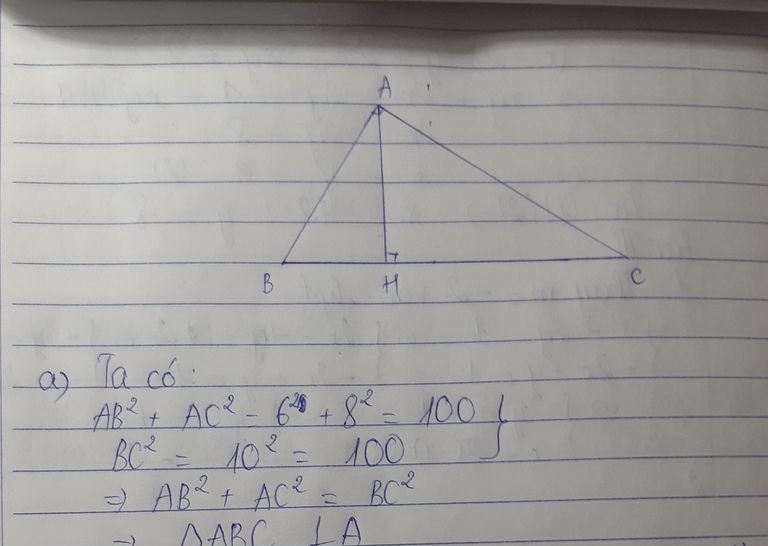 A
B
H
C
a) Ta có:
AB² + AC² = 6² + 8² = 100 }
BC² = 10² = 100
⇒ AB² + AC² = BC²
⇒ ΔABC ⊥ A